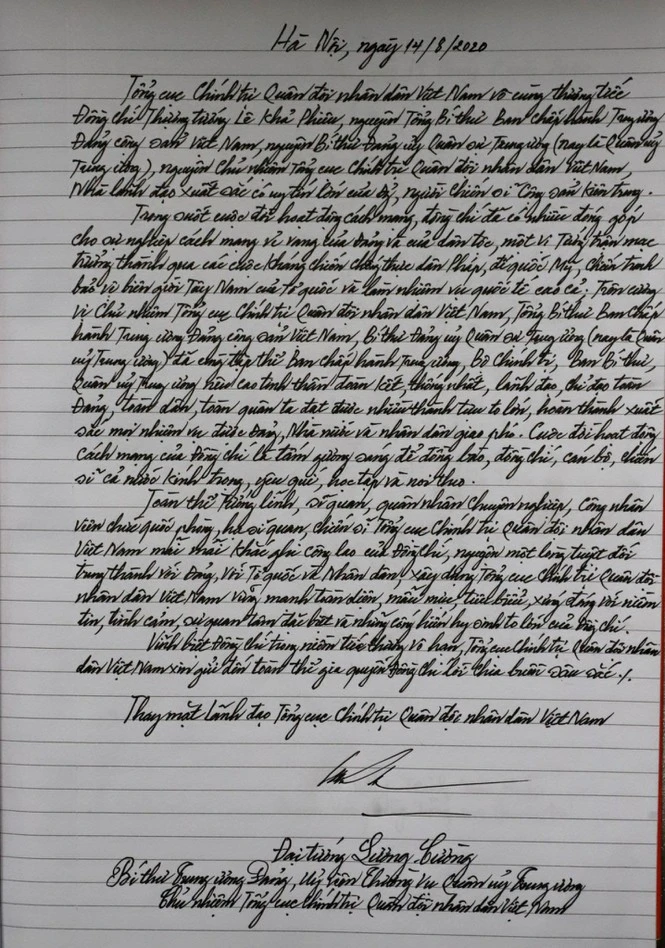 Hà Nội, ngày 14/8/2020
Tổng cục Chính trị Quân đội nhân dân Việt Nam vô cùng thương tiếc
Đồng chí Thượng tướng Lê Khả Phiêu, nguyên Tổng Bí thư Ban chấp hành Trung ương
Đảng cộng sản Việt Nam, nguyên Bí thư Đảng ủy Quân sự Trung ương (nay là Quân ủy
Trung ương), nguyên Chủ nhiệm Tổng cục Chính trị Quân đội nhân dân Việt Nam,
Nhà lãnh đạo xuất sắc có uy tín lớn của Đảng, người chiến sĩ Cộng sản Kiên trung.
Trong suốt cuộc đời hoạt động cách mạng, đồng chí đã có nhiều đóng góp
cho sự nghiệp cách mạng vẻ vang của Đảng và của dân tộc, một vị Tướng trận mạc
trưởng thành qua các cuộc Kháng chiến chống thực dân Pháp, đế quốc Mỹ, chiến tranh
bảo vệ biên giới Tây Nam của Tổ quốc và làm nhiệm vụ quốc tế cao cả; Trên cương
vị Chủ nhiệm Tổng cục Chính trị Quân đội nhân dân Việt Nam, Tổng Bí thư Ban Chấp
hành Trung ương Đảng cộng sản Việt Nam, Bí thư Đảng ủy Quân sự Trung ương (nay là Quân
ủy Trung ương) đã cùng tập thể Ban chấp hành Trung ương, Bộ Chính trị, Ban Bí thư,
Quân uỷ Trung ương nêu cao tinh thần đoàn kết, thống nhất, lãnh đạo, chỉ đạo toàn
Đảng, toàn dân, toàn quân ta đạt được nhiều thành tựu to lớn, hoàn thành xuất
sắc mọi nhiệm vụ được Đảng, Nhà nước và nhân dân giao phó. Cuộc đời hoạt động
cách mạng của Đồng chí là tấm gương sáng để đồng bào, đồng chí, cán bộ, chiến
sĩ cả nước kính trọng, yêu quí, học tập và noi theo.
Toàn thể Tướng lĩnh, sĩ quan, quân nhân chuyên nghiệp, công nhân
viên chức quốc phòng, hạ sĩ quan, chiến sĩ Tổng cục Chính trị Quân đội nhân dân
Việt Nam mãi mãi Khắc ghi công lao của Đồng chí, nguyện một lòng tuyệt đối
trung thành với Đảng, với Tổ quốc và Nhân dân, xây dựng Tổng cục Chính trị Quân đội
nhân dân Việt Nam vững mạnh toàn diện, mẫu mực, tiêu biểu, xứng đáng với niềm
tin, tình cảm, sự quan tâm đặc biệt và những cống hiến hy sinh to lớn của Đồng chí.
Vĩnh biệt Đồng chí trong niềm tiếc thương vô hạn, Tổng cục Chính trị Quân đội nhân
dân Việt Nam xin gửi đến toàn thể gia quyến Đồng chí lời Chia buồn sâu sắc ./.
Thay mặt lãnh đạo Tổng cục Chính trị Quân đội nhân dân Việt Nam
Đại tướng Lương Cường
Bí thư Trung ương Đảng, Uỷ viên Thường vụ Quân uỷ Trung ương
Chủ nhiệm Tổng cục Chính trị Quân đội nhân dân Việt Nam